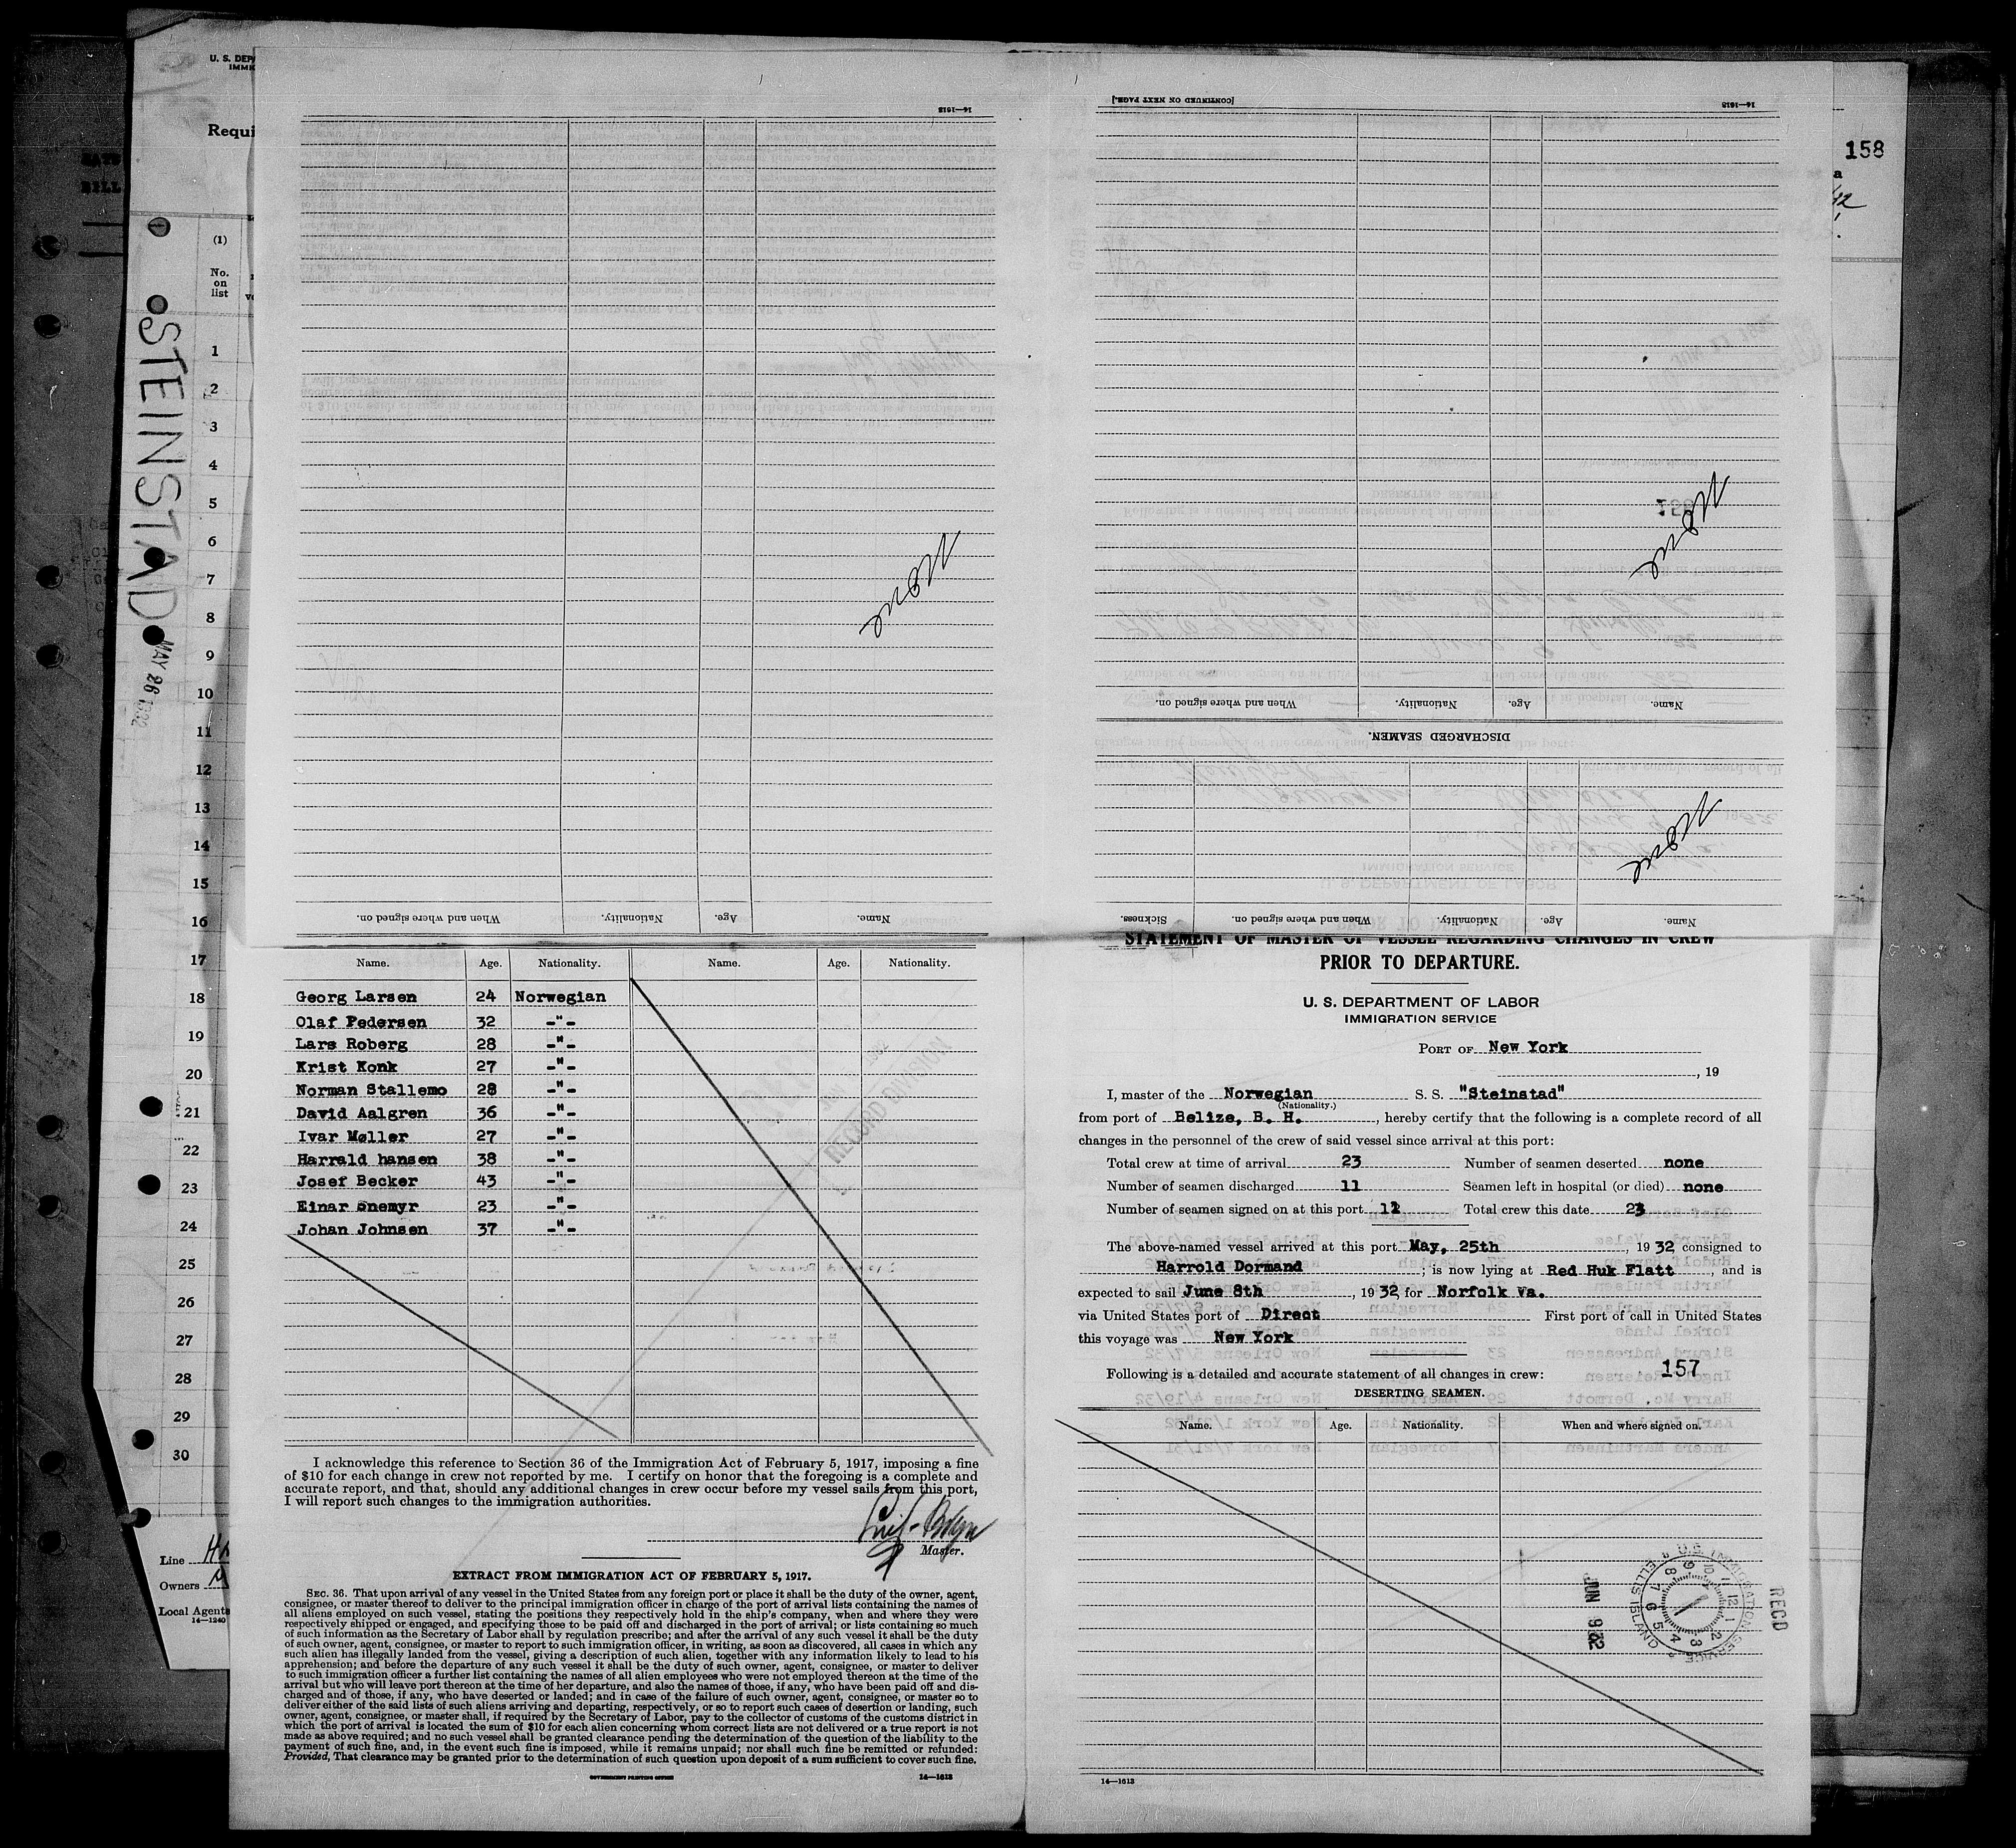 U. S. DEP
IMMI
Requi
(1)
No.
on
list
1
2
3
4
5
6
7
8
9
10
11
12
13
14
15
16
17
18
19
20
21
22
23
24
25
26
27
28
29
30
STEINSTAD
MAY 26 1932
Line
Owners
Local Agents
14—1240
158
14—1613
None
When and where signed on. Nationality. Age. Name.
[CONTINUED ON NEXT PAGE.]
14—1613
None
When and where signed on. Nationality. Age. Name.
DISCHARGED SEAMEN.
None
Sickness. When and where signed on. Nationality. Age. Name.
Name. Age. Nationality. Name. Age. Nationality.
Georg Larsen 24 Norwegian
Olaf Pedersen 32 -"-
Lars Roberg 28 -"-
Krist Konk 27 -"-
Norman Stallemo 28 -"-
David Aalgren 36 -"-
Ivar Møller 27 -"-
Harrald hansen 38 -"-
Josef Becker 43 -"-
Einar Snemyr 23 -"-
Johan Johnsen 37 -"-
RECORD DIVISION
I acknowledge this reference to Section 36 of the Immigration Act of February 5, 1917, imposing a fine
of $10 for each change in crew not reported by me. I certify on honor that the foregoing is a complete and
accurate report, and that, should any additional changes in crew occur before my vessel sails from this port,
I will report such changes to the immigration authorities.
Master.
EXTRACT FROM IMMIGRATION ACT OF FEBRUARY 5, 1917.
SEC. 36. That upon arrival of any vessel in the United States from any foreign port or place it shall be the duty of the owner, agent,
consignee, or master thereof to deliver to the principal immigration officer in charge of the port of arrival lists containing the names of
all aliens employed on such vessel, stating the positions they respectively hold in the ship's company, when and where they were
respectively shipped or engaged, and specifying those to be paid off and discharged in the port of arrival; or lists containing so much
of such information as the Secretary of Labor shall by regulation prescribe; and after the arrival of any such vessel it shall be the duty
of such owner, agent, consignee, or master to report to such immigration officer, in writing, as soon as discovered, all cases in which any
such alien has illegally landed from the vessel, giving a description of such alien, together with any information likely to lead to his
apprehension; and before the departure of any such vessel it shall be the duty of such owner, agent, consignee, or master to deliver
to such immigration officer a further list containing the names of all alien employees who were not employed thereon at the time of the
arrival but who will leave port thereon at the time of her departure, and also the names of those, if any, who have been paid off and dis-
charged and of those, if any, who have deserted or landed; and in case of the failure of such owner, agent, consignee, or master so to
deliver either of the said lists of such aliens arriving and departing, respectively, or so to report such cases of desertion or landing, such
owner, agent, consignee, or master shall, if required by the Secretary of Labor, pay to the collector of customs of the customs district in
which the port of arrival is located the sum of $10 for each alien concerning whom correct lists are not delivered or a true report is not
made as above required; and no such vessel shall be granted clearance pending the determination of the question of the liability to the
payment of such fine, and, in the event such fine is imposed, while it remains unpaid; nor shall such fine be remitted or refunded:
Provided, That clearance may be granted prior to the determination of such question upon deposit of a sum sufficient to cover such fine.
GOVERNMENT PRINTING OFFICE 14—1613
STATEMENT OF MASTER OF VESSEL REGARDING CHANGES IN CREW
PRIOR TO DEPARTURE.
U. S. DEPARTMENT OF LABOR
IMMIGRATION SERVICE
PORT OF New York
, 19
I, master of the Norwegian S. S. "Steinstad"
(Nationality.)
from port of Belize, B. H. , hereby certify that the following is a complete record of all
changes in the personnel of the crew of said vessel since arrival at this port:
Total crew at time of arrival 23 Number of seamen deserted none
Number of seamen discharged 11 Seamen left in hospital (or died) none
Number of seamen signed on at this port 11 Total crew this date 23
The above-named vessel arrived at this port May, 25th , 19 32, consigned to
Harrold Dormand ; is now lying at Red Huk Flatt , and is
expected to sail June 8th , 19 32, for Norfolk Va.
via United States port of Direct First port of call in United States
this voyage was New York
Following is a detailed and accurate statement of all changes in crew: 157
DESERTING SEAMEN.
Name. Age. Nationality. When and where signed on.
JUN 9 32
U. S. IMMIGRATION SERVICE
ELLIS ISLAND
REC'D
14—1613